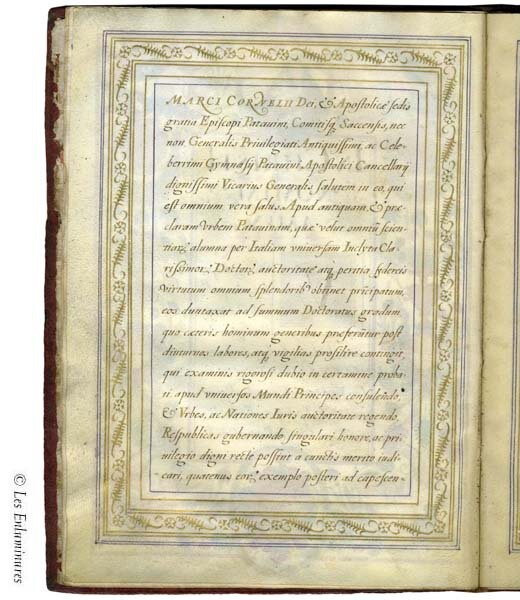 MARCI CORNELII Dei, & Apostolicæ sedis
gratia Episcopi Patavini, Comitisq; Saccensis, nec
non Generalis Privilegiati Antiquissimi, ac Cele-
berrimi Gymnasij Patavini Apostolici Cancellarij
dignissimi Vicarius Generalis salutem in eo, qui
est omnium vera salus. Apud antiquam, & præ-
claram Vrbem Patavinam, quæ velut omniũ scien-
tiarꝝ alumna per Italiam vniversam Inclyta Cla-
rissimorꝝ Doctorꝝ auctoritate atq; peritia
virtutum omnium splendoribꝰ obtinet prĩcipatum,
eos duntaxat ad summum Doctoratus gradum,
quo cæteris hominum generibus præferũtur post
diuturnos labores, atq; vigilias prosilire contingit,
qui examinis rigorosi dubio in certamine proba-
ti apud vniversos Mundi Principes consulẽdo,
& Vrbes, ac Nationes Iuris auctoritate regendo,
Respublicas gubernando, singulari honore, ac pri-
vilegio digni recte possint à cunctis merito iudi-
cari, quatenus eorꝝ exemplo posteri ad capescen-
© Les Enluminures